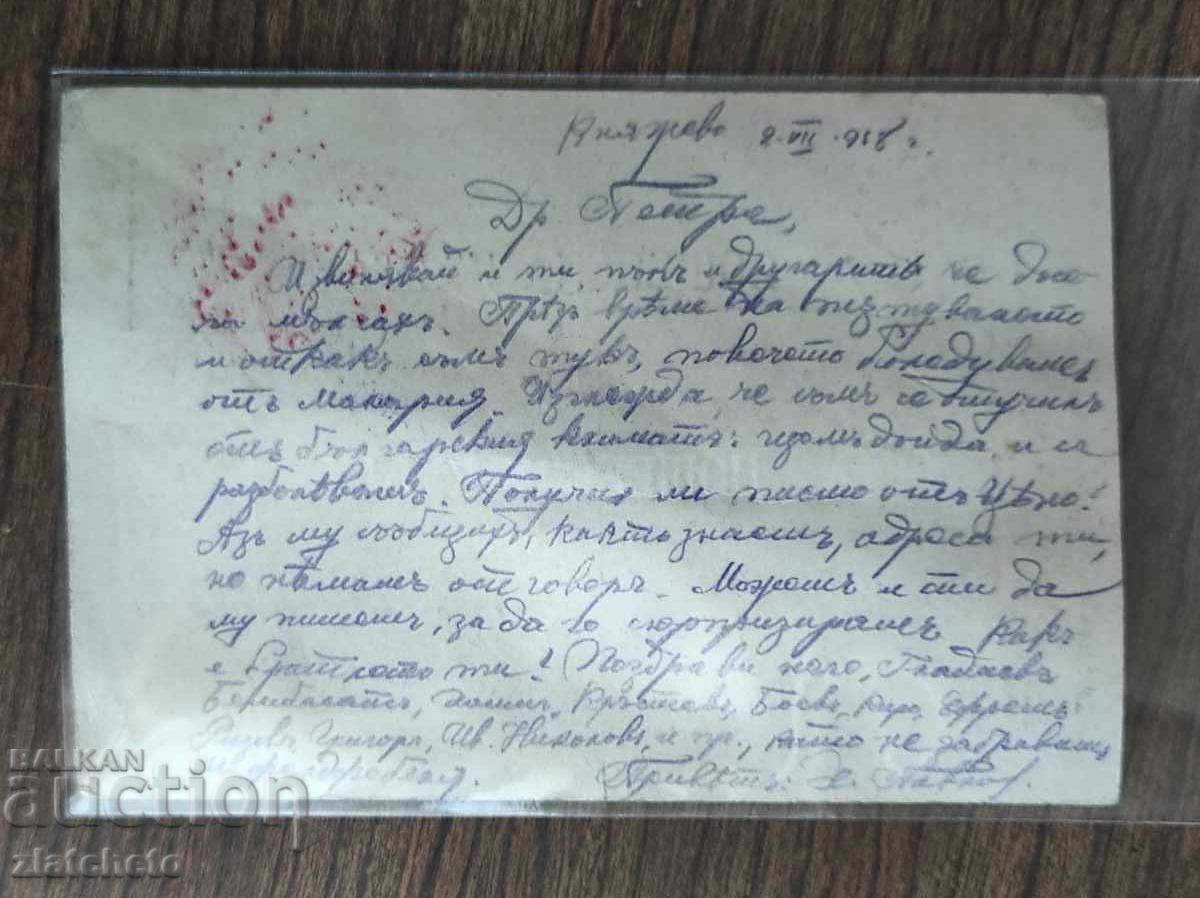 Княжево 2.VIII.918 г.
Др. Петре,
Извинявай и ти, пъкъ и другаритѣ, че дъл-
го мълчахъ. Прѣзъ врѣме на пътуването
и откакъ съмъ тукъ, повечето боледувамъ
отъ малария. Изглежда, че съмъ се отучилъ
отъ българския климатъ: щомъ дойда, и се
разболѣвамъ. Получи ли писмо отъ Цѣно?
Азъ му съобщихъ, както знаешъ, адреса ти,
но нѣмамъ отговоръ. Можешъ и ти да
му пишешъ, за да го сюрпризирашъ. Какъ
е братлето ти? Поздрави него,
Кръстевъ, Боевъ,
Григора, Ив. Николовъ, и пр., като не забравишъ
Привѣтъ: Х.
BALKAN
auction
zlatcheto